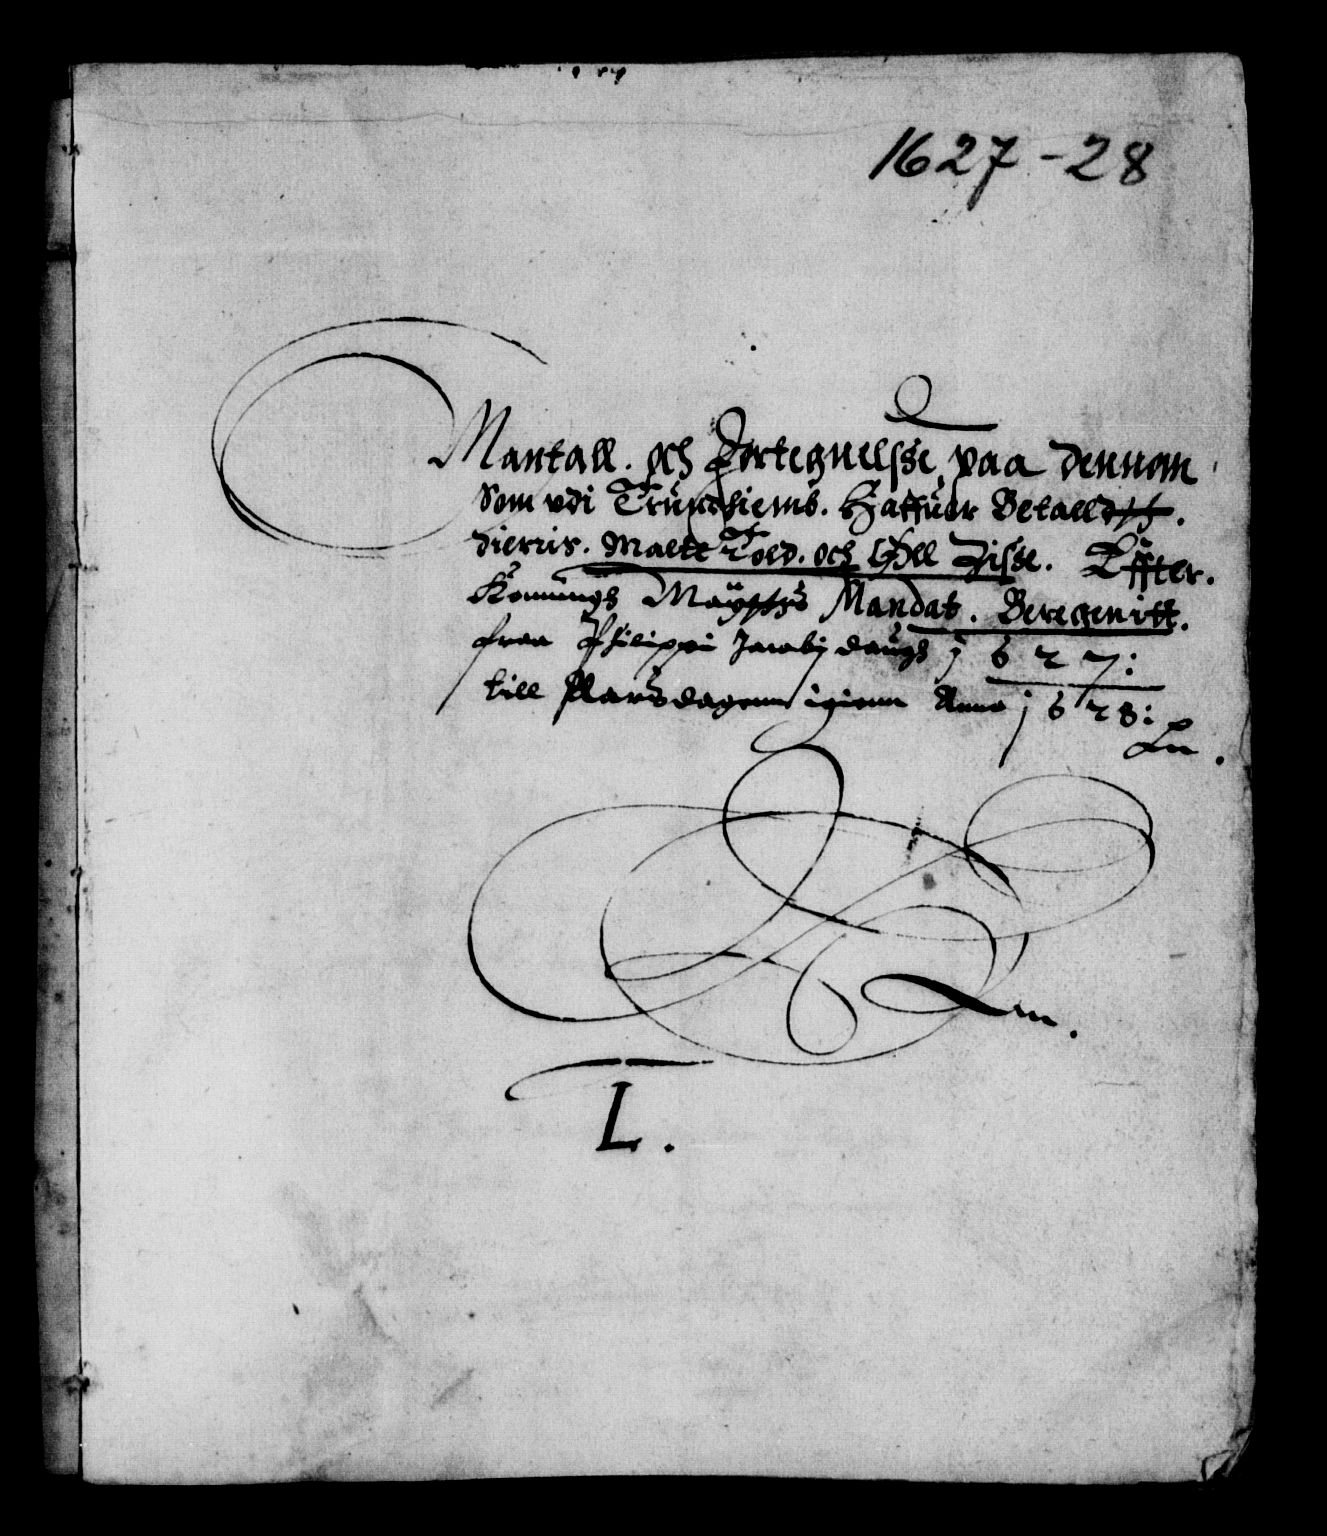 1627-28
Mantall. och Fortegnelsse, paa dennom
Som vdi Trundhiemb. Haffuer Betalldt.
dierris. Malt Told. och Øll Zisse. Effter.
Konnings Mayts Mandat. Beregenitt.
fraa Philippi Jacobj daugh j 6 2 7:
till Aarsdagenn igienn Anno j 6 2 8:
L.